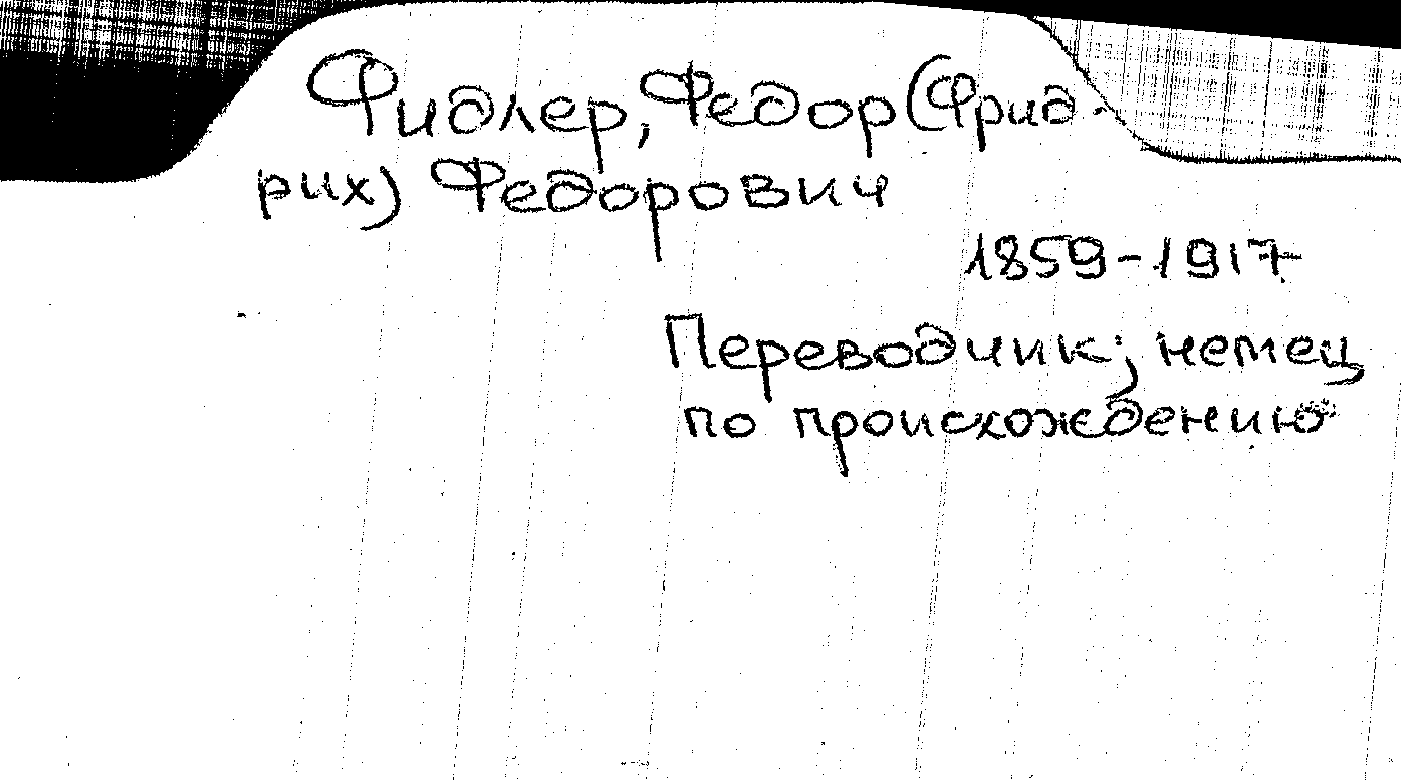 Фидлер, Федор (Фрид-
рих) Федорович
1859-1917
Переводчик; немец
по происхождению